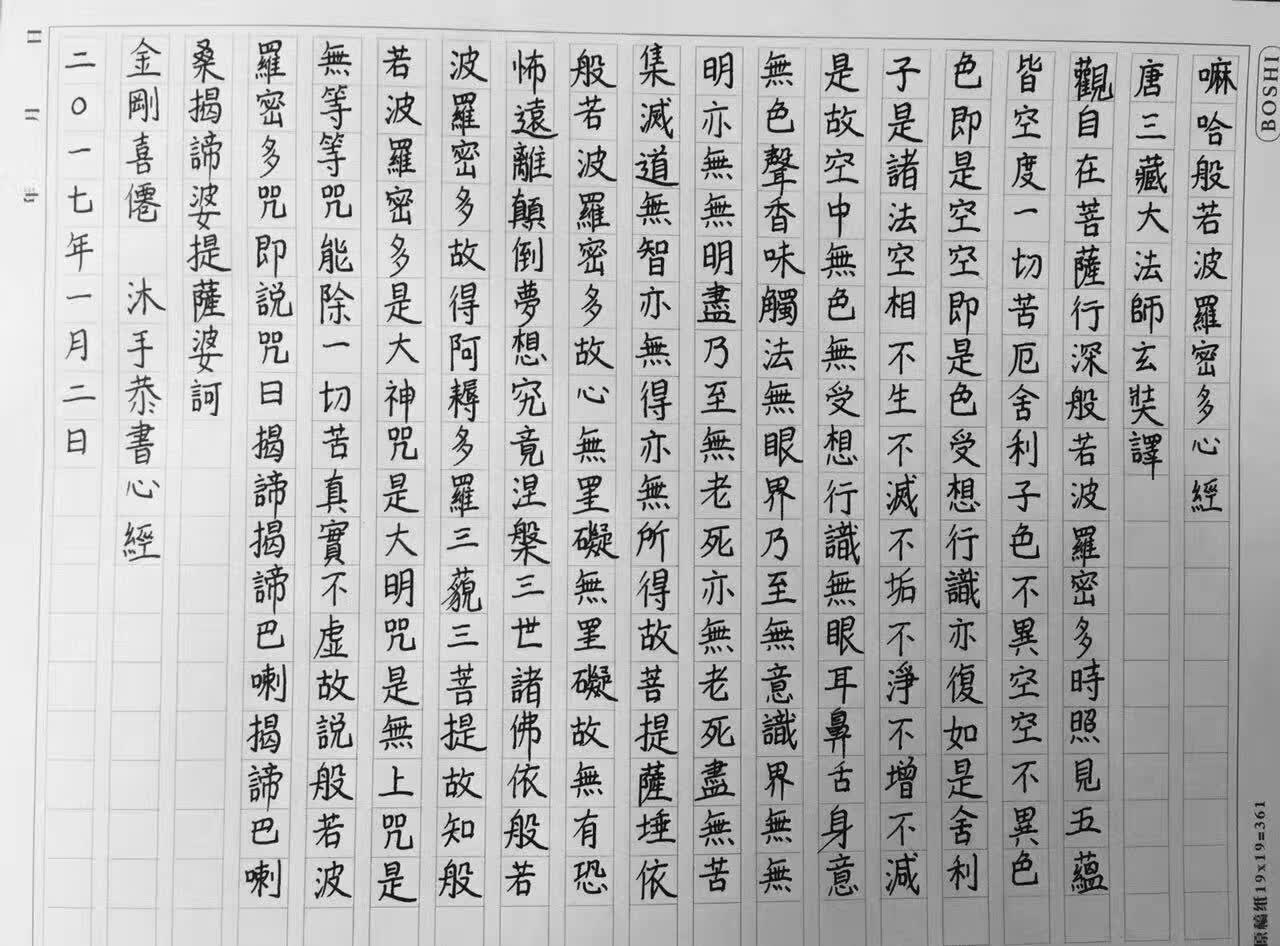 嘛哈般若波羅密多心經
唐三藏大法師玄奘譯
觀自在菩薩行深般若波羅密多時照見五蘊
皆空度一切苦厄舍利子色不異空空不異色
色即是空空即是色受想行識亦復如是舍利
子是諸法空相不生不滅不垢不淨不增不減
是故空中無色無受想行識無眼耳鼻舌身意
無色聲香味觸法無眼界乃至無意識界無無
明亦無無明盡乃至無老死亦無老死盡無苦
集滅道無智亦無得亦無所得故菩提薩埵依
般若波羅密多故心無罣礙無罣礙故無有恐
怖遠離顛倒夢想究竟涅槃三世諸佛依般若
波羅密多故得阿耨多羅三藐三菩提故知般
若波羅密多是大神咒是大明咒是無上咒是
無等等咒能除一切苦真實不虛故説般若波
羅密多咒即説咒曰揭諦揭諦巴喇揭諦巴喇
桑揭諦婆提薩婆訶
金剛喜僊 沐手恭書心經
二〇一七年一月二日
BOSHI
原稿纸19x19=361